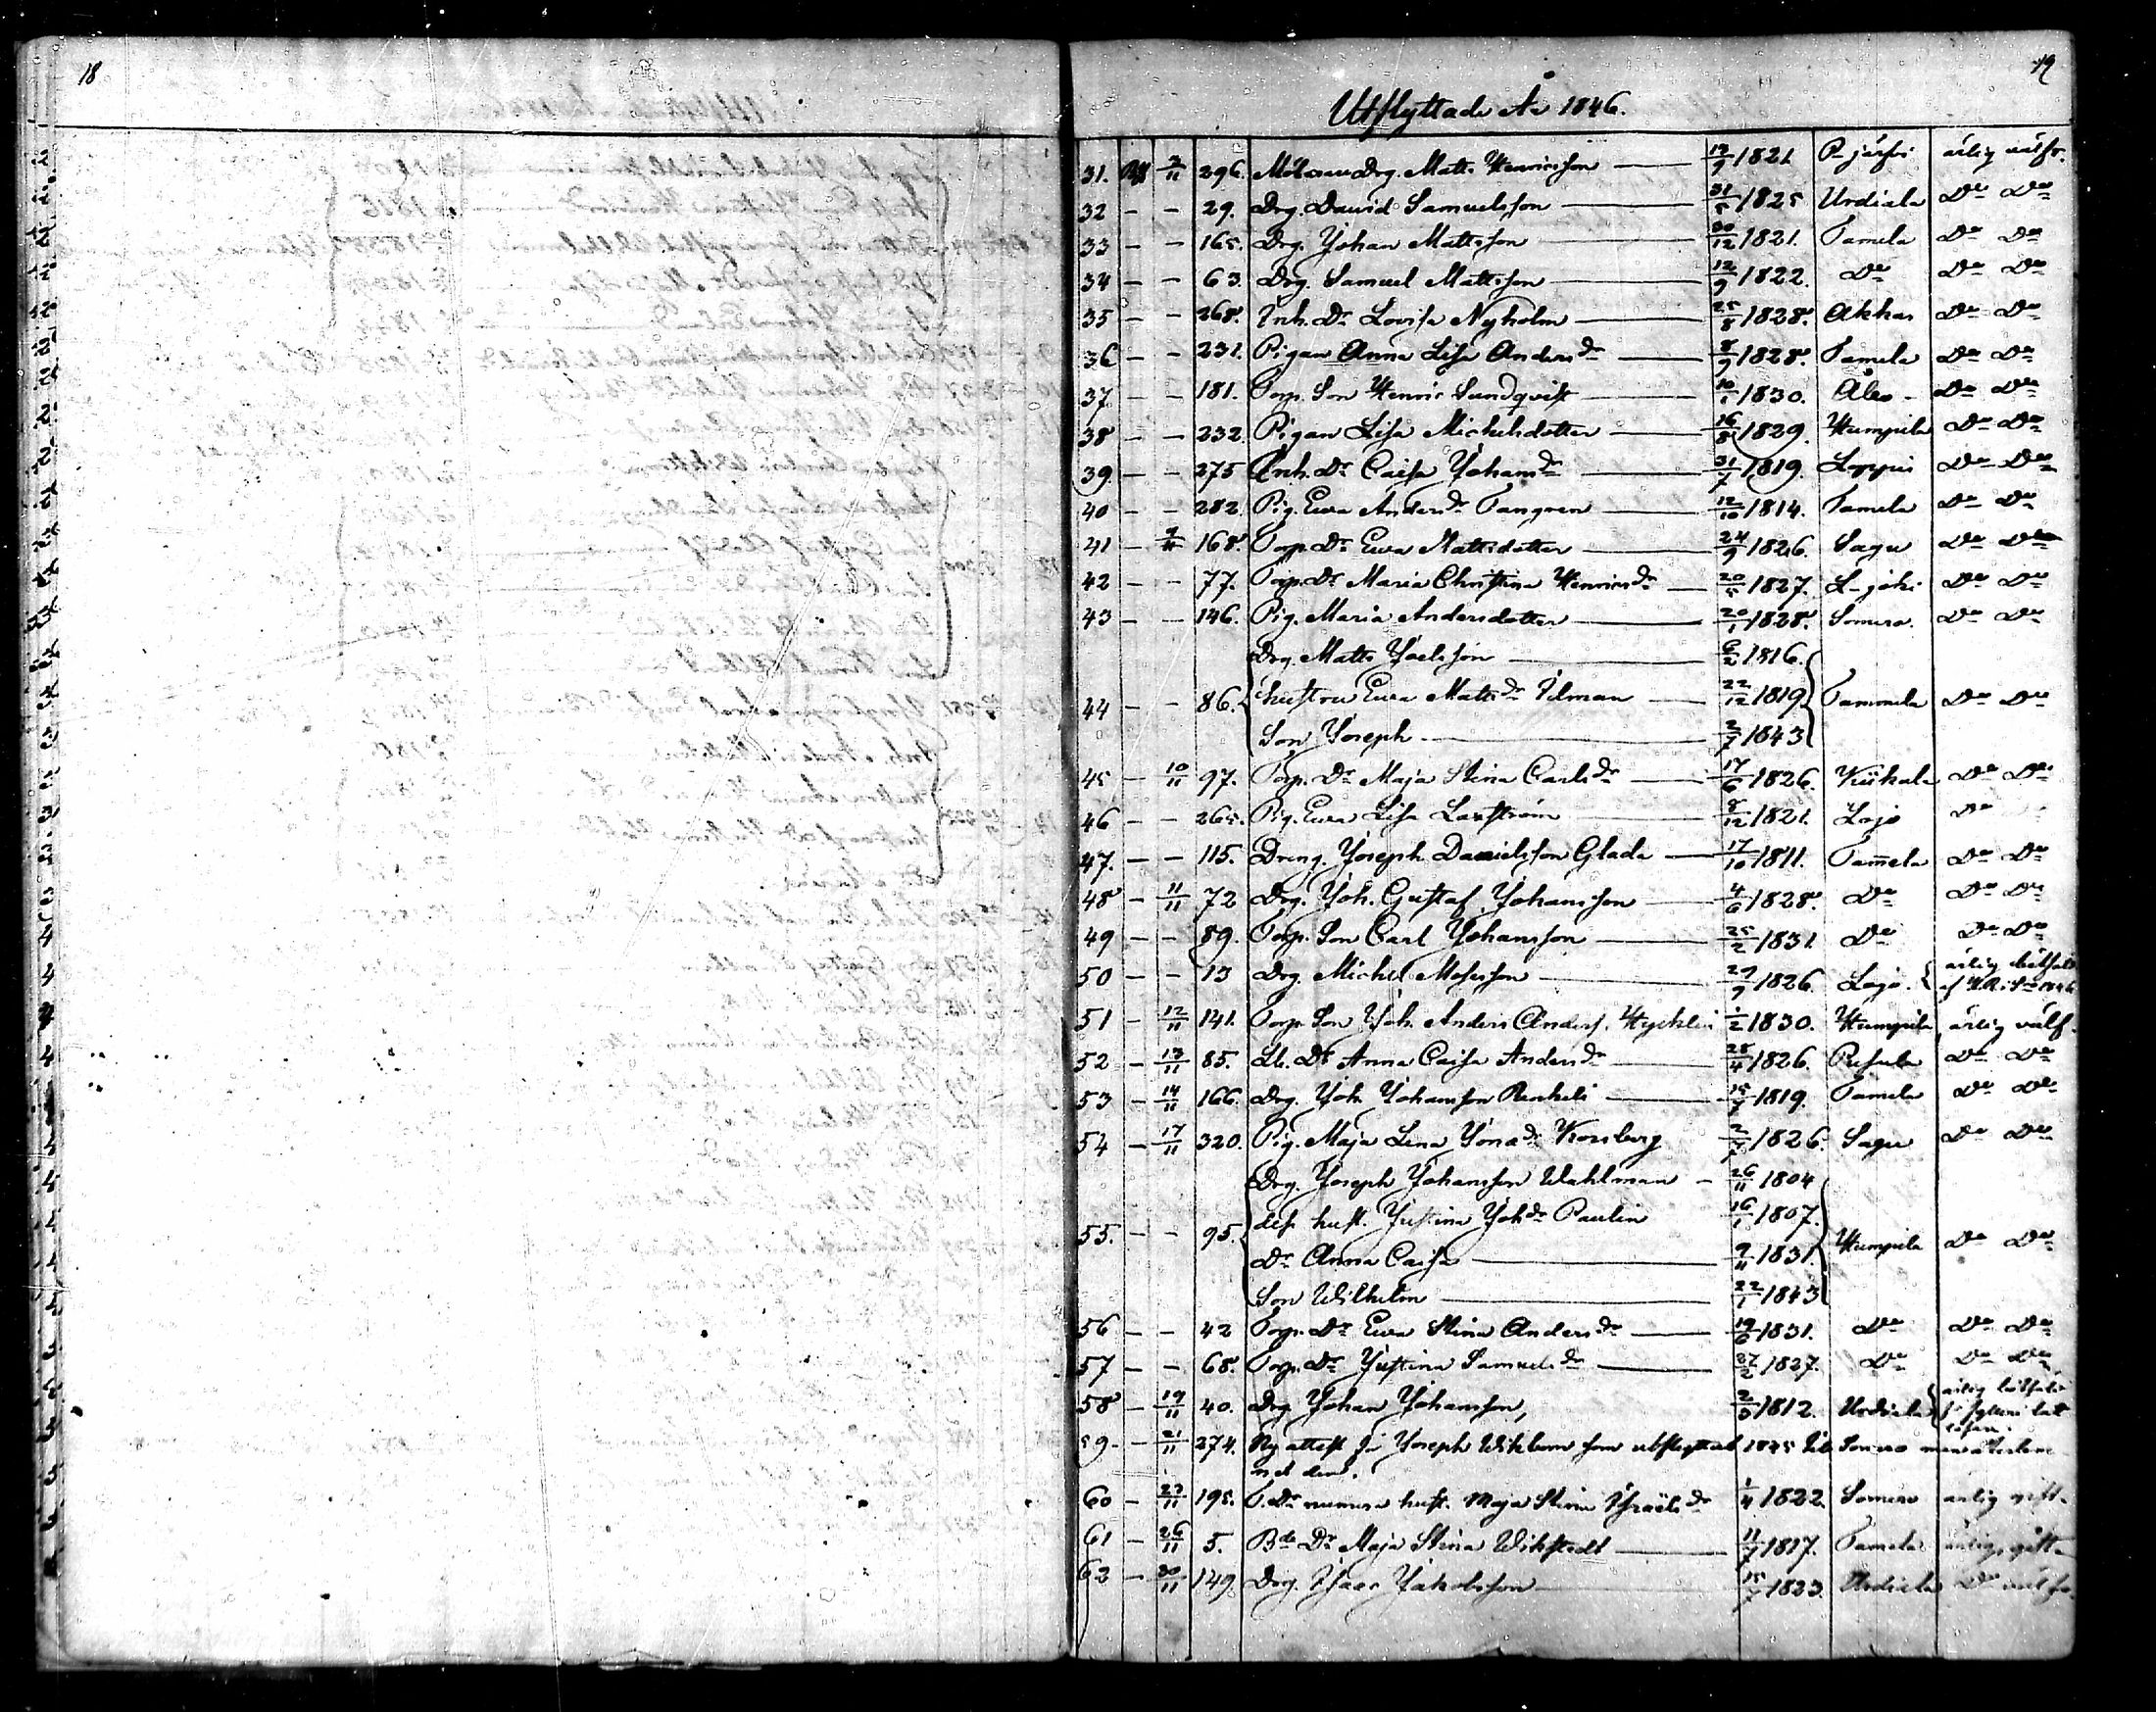 18
19
Utflyttade År 1846.
31. 2/11 296. Drg. Matts Henricsson 12/9 1821 P-järfvi ärlig välfr.
32 - - 29. Drg. David Samuelsson 31/5 1825 Urdiala Do Do
33 - - 165. Drg. Johan Mattsson 30/12 1821. Tamela Do Do
34 - - 63. Drg. Samuel Mattsson 12/9 1822. Do Do Do
35 - - 268. Inh. Dr Lovisa Nyholm 25/8 1828. Akkas Do Do
36 - - 231. Pigan Anna Lisa Andersdr 8/9 1828. Tamela Do Do
37 - - 181. Torp. Son Henric Sundqvist 10/1 1830. Åbo - Do Do
38 - - 232. Pigan Lisa Michelsdotter 16/8 1829. Humpila Do Do
39. - - 275 Inh. Dr Caisa Johansdr 31/7 1819. Loppis Do Do
40 - - 282. Pig. Ewa Andersdr Tangren 12/10 1814. Tamela Do Do
41 - 9/11 168. Torp. Dr Ewa Mattsdotter 24/9 1826. Sagu Do Do
42 - - 77. Torp. Dr Maria Christina Henricsdr 20/5 1827. L-joki Do Do
43 - - 146. Pig. Maria Andersdotter 20/1 1828. Somero. Do Do
Drg. Matts Joelsson 6/2 1816.
44 - - 86. hustru Ewa Mattsdr Ilman 22/12 1819 Tammela Do Do
Son Joseph 2/7 1843
45 - 10/11 97. Torp. Dr Maja Stina Carlsdr 17/6 1826. Kiikala Do Do
46 - - 265. Pig. Ewa Lisa Laxström 8/12 1821. Lojo Do
47. - - 115. Dreng. Joseph Danielsson Glada 17/10 1811. Tamela Do Do
48 - 11/11 72 Drg. Joh. Gustaf Johansson 4/6 1828. Do Do Do
49 - - 89. Torp. Son Carl Johansson 25/2 1831 Do Do Do
50 - - 13 Drg. Michel Mosisson 29/9 1826. Lojo. ärlig
51 - 12/11 141. Torp. Son Joh. Anders Anders. 1/2 1830. Humpila ärlig välf.
52 - 13/11 85. Dr Anna Caisa Andersdr 28/4 1826. Pusula Do Do
53 - 14/11 166. Drg. Joh. Johansson Renkeli 15/7 1819. Tamela Do Do
54 - 17/11 320. Pig. Maja Lena Jonasdr Kornberg 2/7 1826. Sagu Do Do
Drg. Joseph Johansson Wahlman - 26/11 1804
dess hust. Justina Johdr Paulin 16/1 1807.
55. - - 95. Dr Anna Caisa 9/11 1831. Humpila Do Do
Son Wilhelm 22/1 1843
56 - - 42 Torp. Dr Ewa Stina Andersdr 19/6 1831. Do Do Do
57 - - 68. Torp. Dr Justina Samuelsdr 27/2 1827. Do Do Do
58 - 19/11 40. Drg. Johan Johansson, 2/3 1812. Urdiala ärlig
59. - 21/11 274. Ny attest för Joseph Wiklum som utflyttat 1845 till Somero men
60 - 23/11 195. T. Dr numera hust. Maja Stina Israelsdr 1/4 1822. Somero ärlig gift.
61 - 26/11 5. Bde Dr Maja Stina Wikstedt 11/7 1817. Tamela ärlig, gift.
62 - 30/11 149. Drg. Isaac Jakobsson 15/7 1823. Urdiala Do